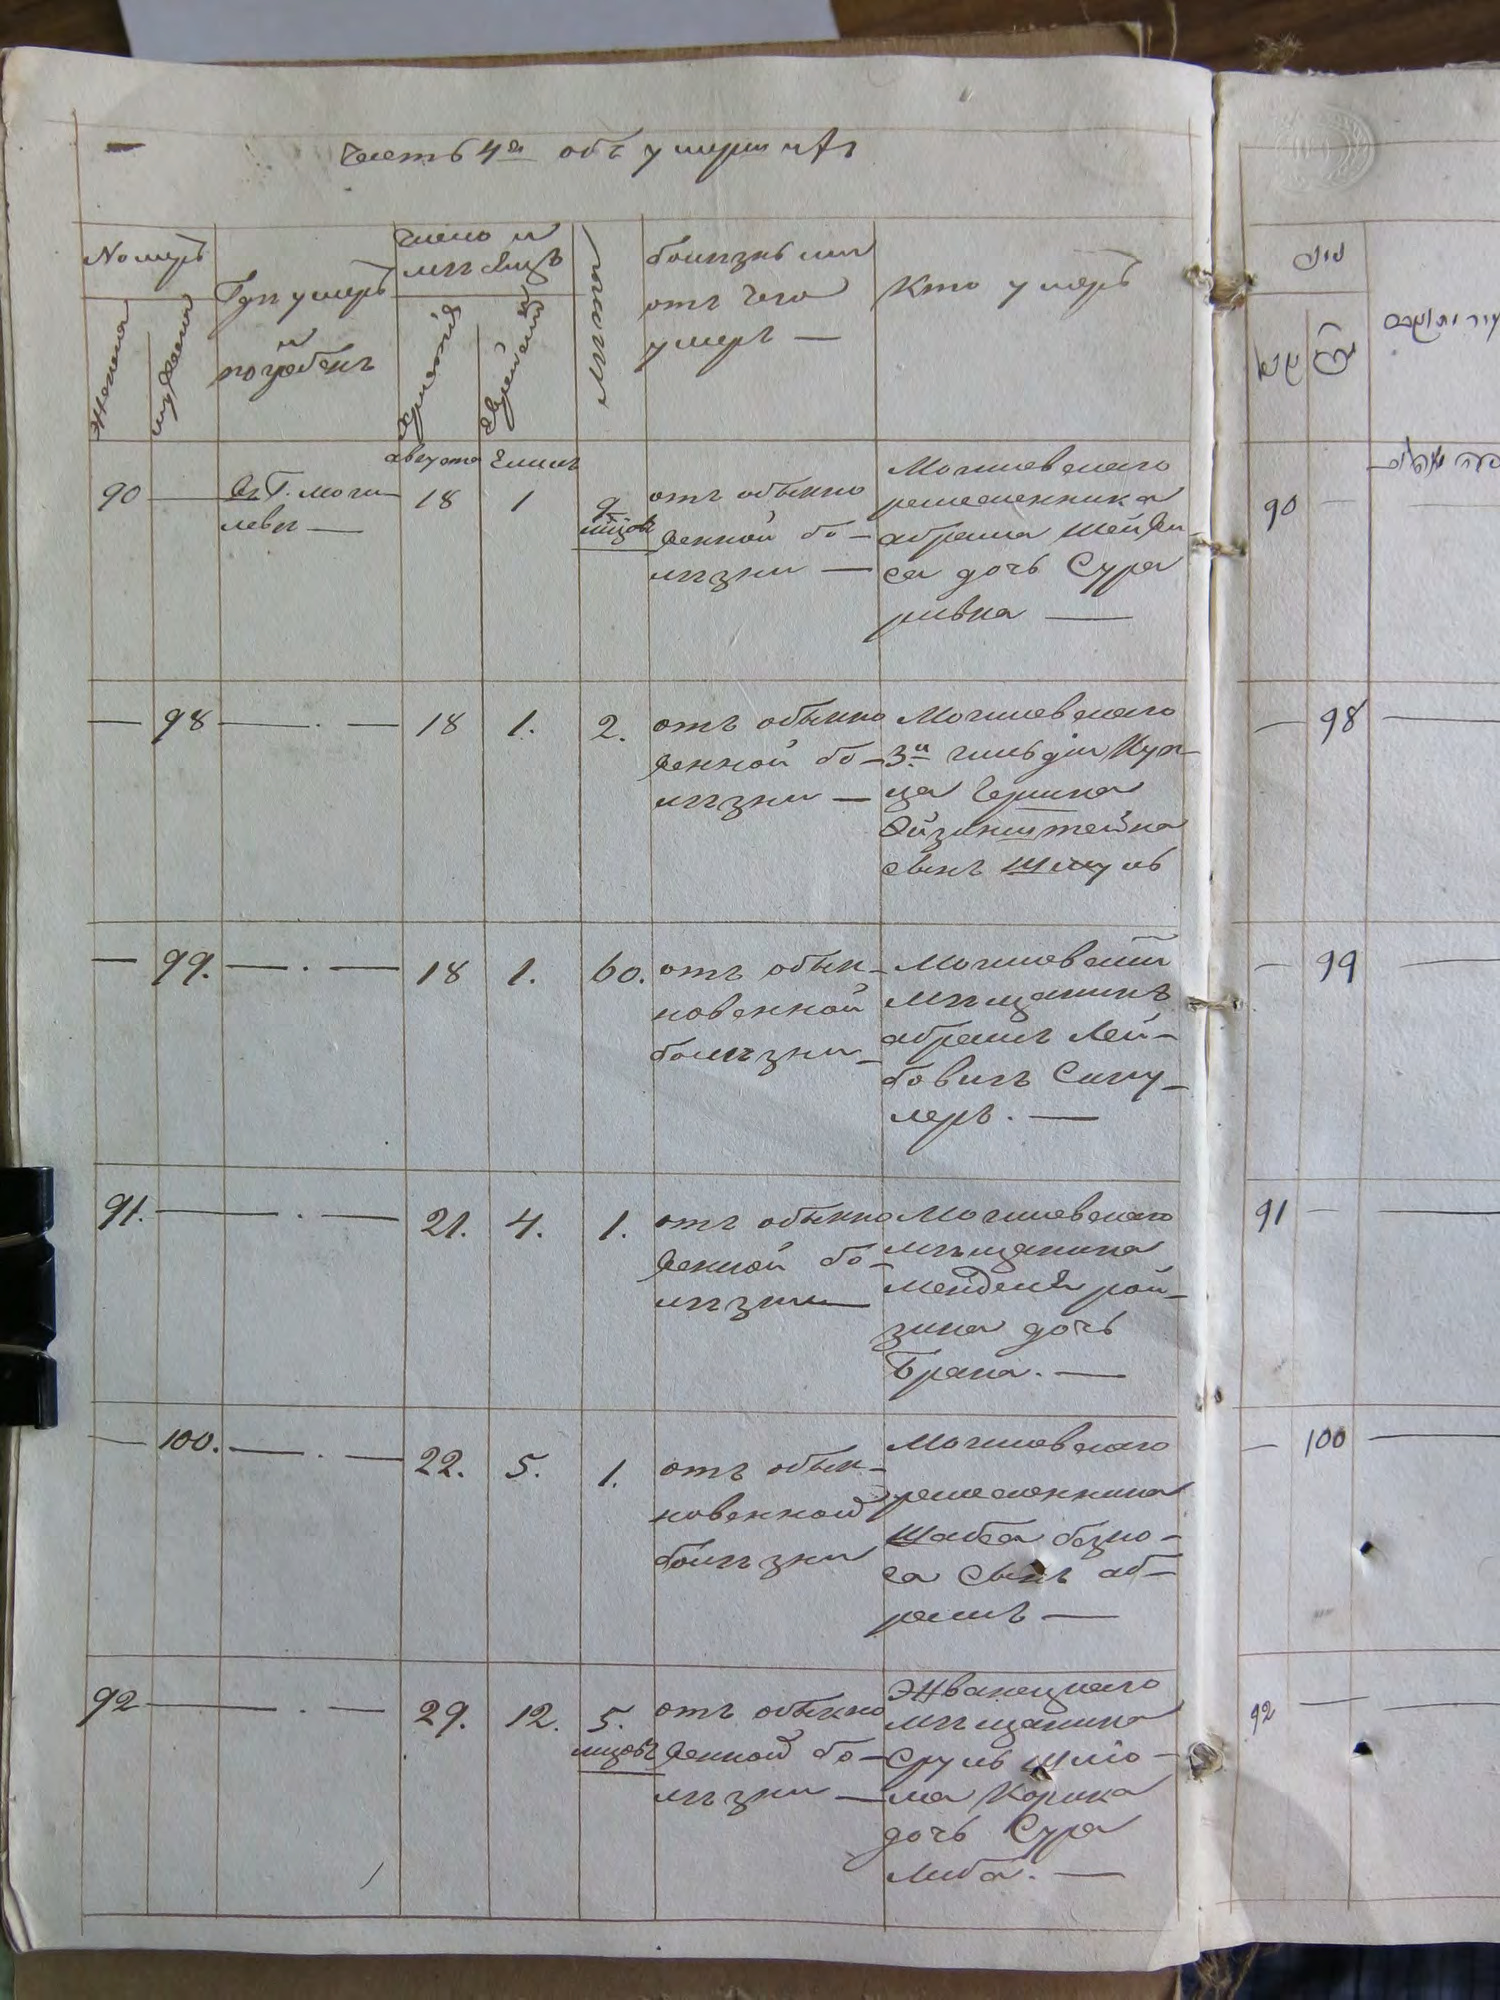 Часть 4я объ умершихъ
Номеръ
Женска
мужеска
Гдѣ умеръ
и
погребенъ
Число и
мѣсяцъ
Христiя
Еврейскiй
Лѣта
болѣзнь или
отъ чего
умеръ —
Кто умеръ
августа
Елюлъ
90 — въ Г. Моги
левѣ — 18 1 9
мѣцов
отъ обыкно
венной бо-
лѣзни —
Могилевскаго
ремесленника
абрама
са дочь Сура
ривка —
— 98 — . — 18 1. 2.
отъ обыкно
венной бо-
лѣзни —
Могилевскаго
3й гильдiи Куп-
ца Гершка
Айзинштейна
сынъ Шмуль
— 99. — . — 18 1. 60.
отъ обык-
новенной
болѣзни-
Могилевскiй
мѣщанинъ
абрамъ Лей-
бовичъ
леръ. —
91. — . — 21. 4. 1.
отъ обыкно
венной бо-
лѣзни—
Могилевскаго
мѣщанина
менделя рой-
зина дочь
Брана. —
— 100. — . — 22. 5. 1.
отъ обык-
новенной
болѣзни
Могилевскаго
ремесленника
безно-
са сынъ аб-
рамъ —
92 — . — 29. 12. 5.
мѣцовъ
отъ обыкно
венной бо-
лѣзни —
Жванецкаго
мѣщанина
Сруль Шлио-
ма Корика
дочь Сура
Либа. —
90 —
— 98 —
— 99 —
91 — —
— 100 —
92 — —